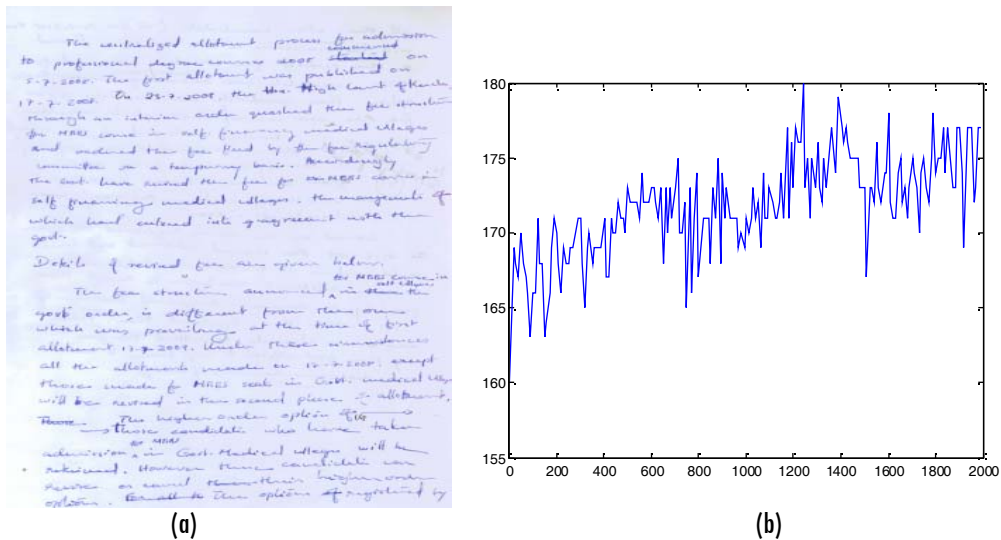 The centralized allotment process for admission
commenced
to professional degree courses 2008 started on
5-7-2008. The first allotment was published on
17-7-2008. On 23-7-2008, the High Court of Kerala,
through an interim order quashed the fee structure
for MBBS course in self financing medical colleges
and ordered the fee fixed by the fee regulatory
committee on a temporary basis. Accordingly
the Govt. have revised the fee for MBBS course in
self financing medical colleges. the managements of
which had entered into agreement with the
govt.
Details of revised fee are given below.
for MBBS course in
self colleges
The fee structure announced, in the
govt order, is different from the one
which was prevailing at the time of first
allotment 17-7-2008. Under these circumstances
all the allotments made on 17-7-2008, except
those made for MBBS seats in Govt. medical colleges
will be revised in the second phase of allotment.
The higher order option of
those candidates who have taken
for MBBS
admission in Govt. Medical colleges will be
retained. However these candidates can
revise or cancel their higher order
options. The options registered by
(a)
180
175
170
165
160
155
0 200 400 600 800 1000 1200 1400 1600 1800 2000
(b)